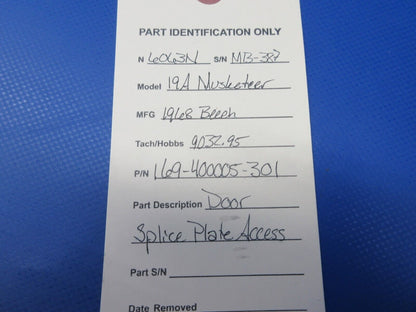 PART IDENTIFICATION ONLY
N 6063N S/N MB-387
Model 19A Musketeer
MFG 1968 Beech
Tach/Hobbs 9032.95
P/N 169-400005-301
Part Description Door
Splice Plate Access
Part S/N
Date Removed